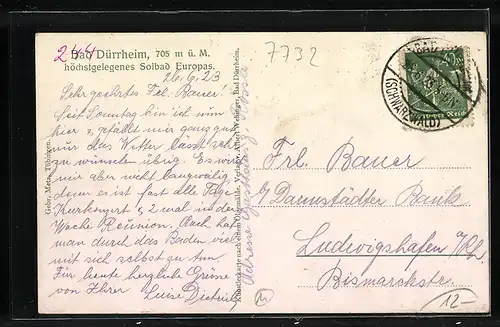 244
Bad Dürrheim, 705 m ü. M.
höchstgelegenes Solbad Europas.
7732
26.6.23
Sehr geehrtes Frl. Bauer!
Seit Sonntag bin ich nun
hier & gefällt mir ganz gut
nur das Wetter lässt sehr
zu wünschen übrig. Es wird
mir aber nicht langweilig
denn es ist fast alle Tage
Kurkonzert & 2 mal in der
Woche Reunion. Auch hat
man durch das Baden viel
mit sich selbst zu tun.
Für heute herzliche Grüsse
von Ihrer Luise Dietrich
Gebr. Metz, Tübingen.
Künstlerkarte nach dem Ölgemälde. Verlag Alfred Bad Dürrheim.
Adresse
BAD
(SCHWARZWALD)
Frl. Bauer
Darmstädter Bank
Ludwigshafen a/Rh.
Bismarckstr.
12-